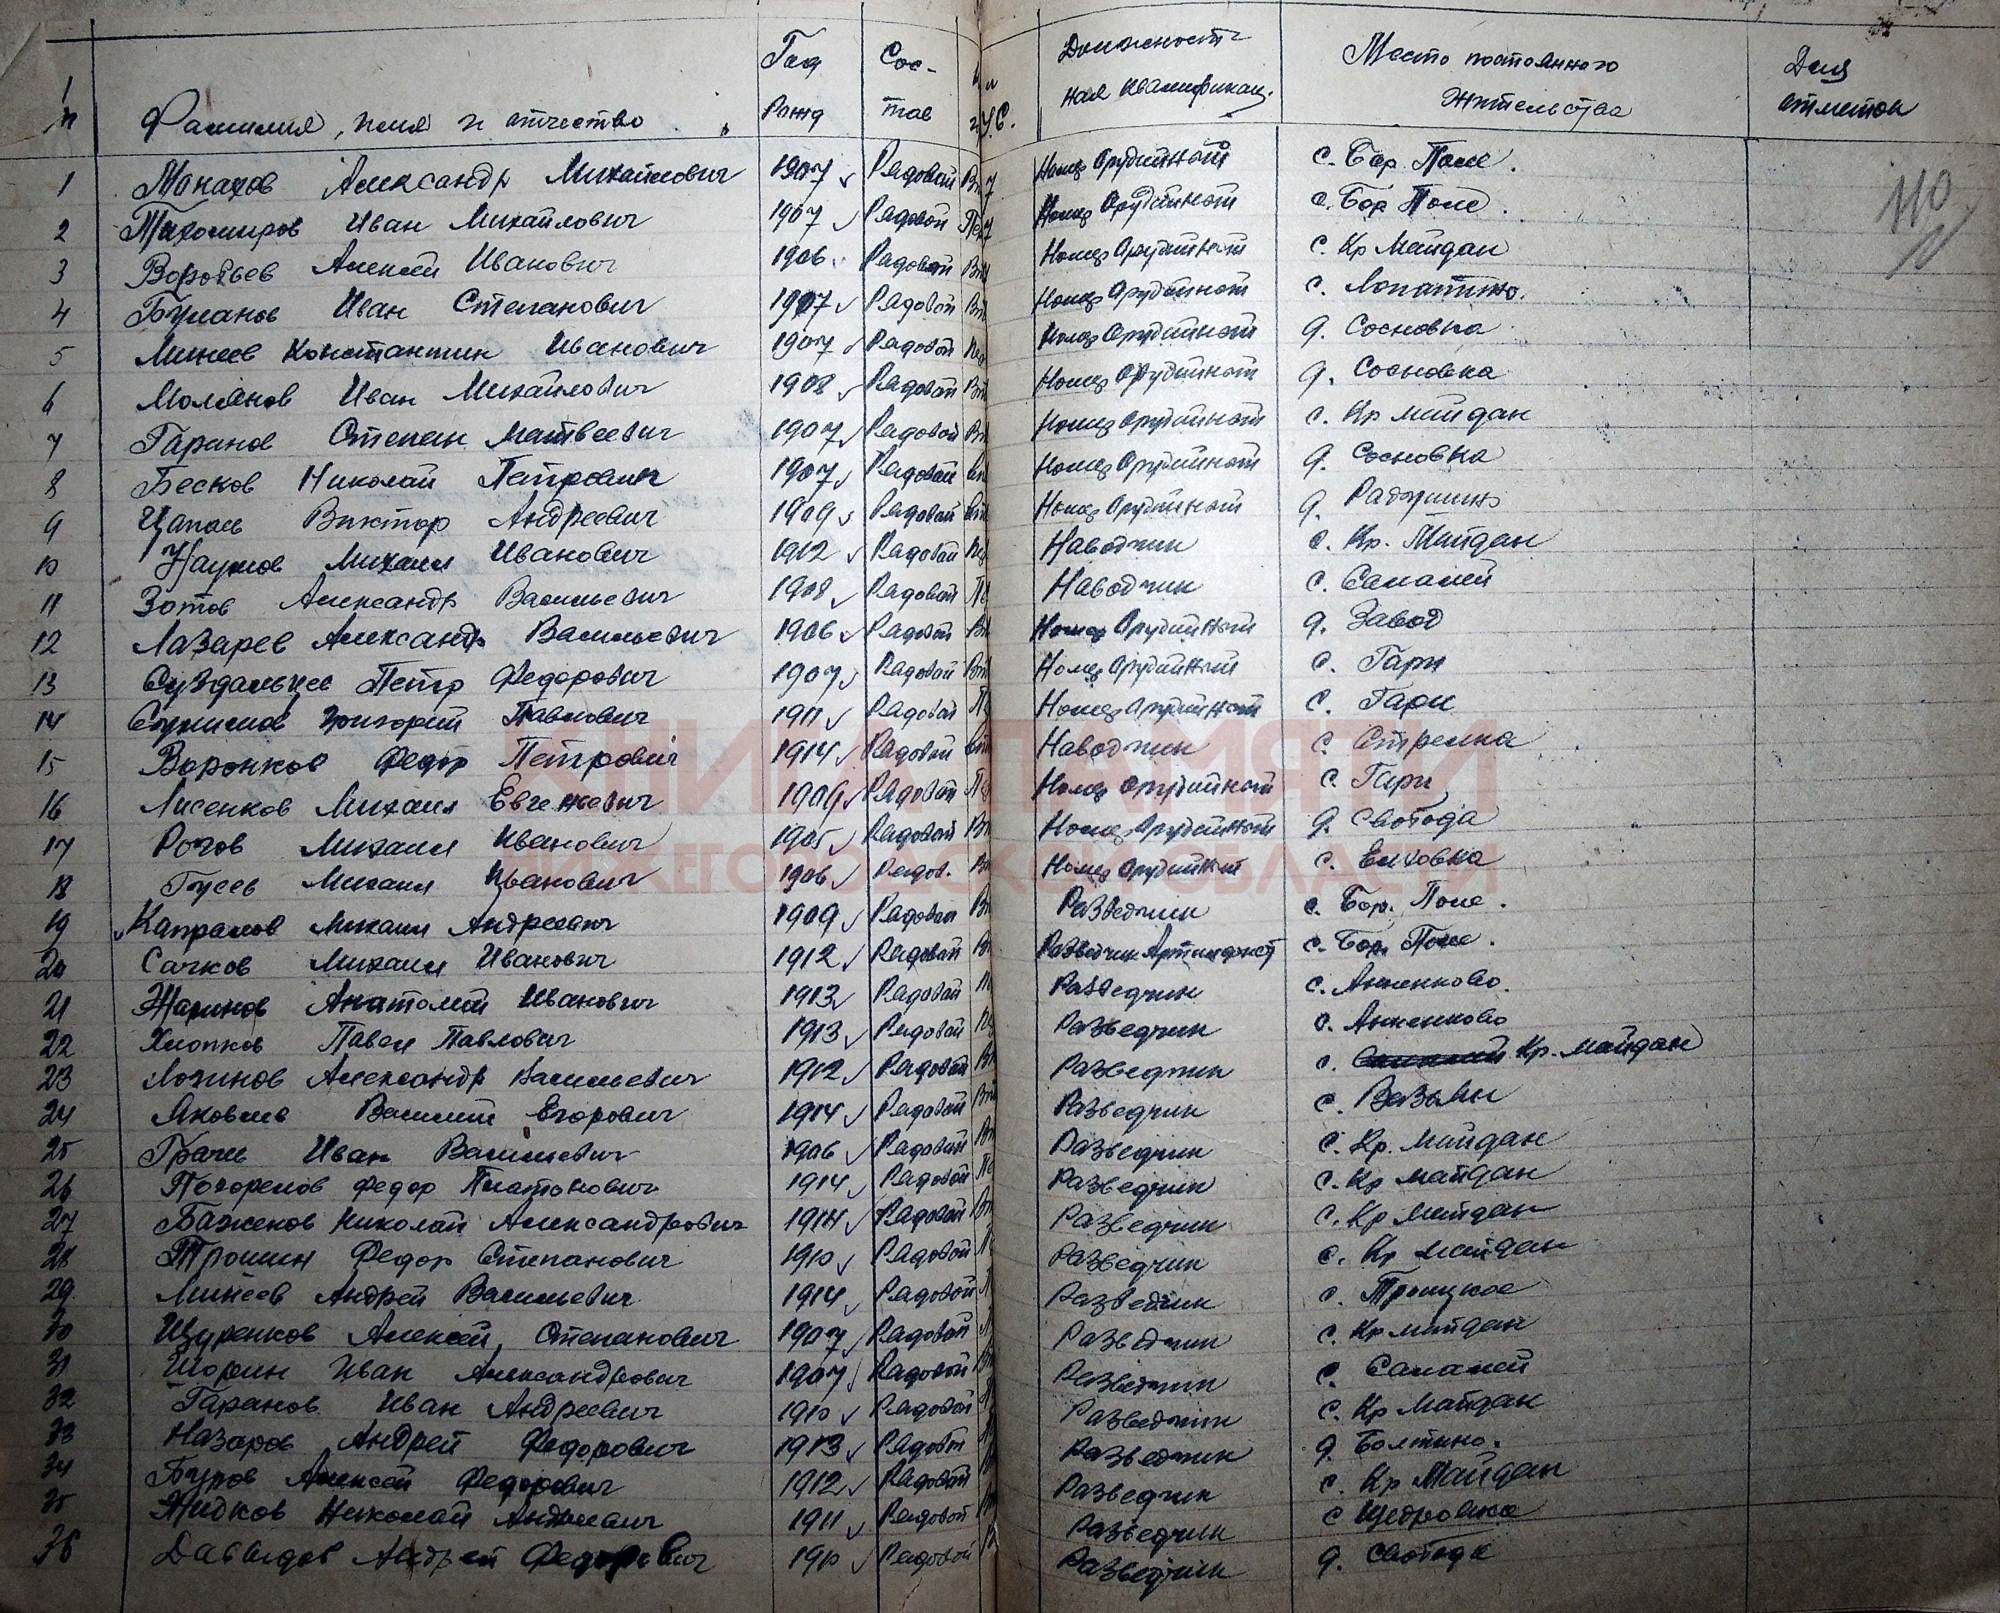 Год Сос- Должност- Место постоянного Для
п Фамилия, имя и отчество Рожд тав У.С. ная квалификац. Жительства отметок
1 Монахов Александр Михайлович 1907 Рядовой Номер Орудийной с. Бор. Поле.
110
2 Тихомиров Иван Михайлович 1907 Рядовой Номер Орудийной с. Бор Поле.
3 Воробьев Алексей Иванович 1906 Рядовой Номер Орудийной с. Кр Майдан
4 Буланов Иван Степанович 1907 Рядовой Номер Орудийной с. Лопатино.
5 Минеев Константин Иванович 1907 Рядовой Номер Орудийной д. Сосновка
6 Молянов Иван Михайлович 1908 Рядовой Номер Орудийной д. Сосновка
7 Гаринов Степан Матвеевич 1907 Рядовой Номер Орудийной с. Кр Майдан
8 Бесков Николай Петрович 1907 Рядовой Номер Орудийной д. Сосновка
9 Цапась Виктор Андреевич 1909 Рядовой Номер Орудийной д.
10 Наумов Михаил Иванович 1912 Рядовой Наводчик с. Кр. Майдан
11 Зотов Александр Васильевич 1908 Рядовой Наводчик с. Саламей
12 Лазарев Александр Васильевич 1906 Рядовой Номер Орудийной д. Завод
13 Суздальцев Петр Федорович 1907 Рядовой Номер Орудийной с. Гари
14 Григорий Павлович 1911 Рядовой Номер Орудийной с. Гари
15 Воронков Федор Петрович 1914 Рядовой Наводчик с. Стрелка
16 Лисенков Михаил Евгеньевич 1909 Рядовой Номер Орудийной с. Гари
17 Рогов Михаил Иванович 1905 Рядовой Номер Орудийной д. Свобода
18 Гусев Михаил Иванович 1906 Рядов. Номер Орудийной с. Елховка
19 Капралов Михаил Андреевич 1909 Рядовой Разведчик с. Бор. Поле.
20 Сачков Михаил Иванович 1912 Рядовой Разведчик с. Бор. Поле.
21 Жаринов Анатолий Иванович 1913 Рядовой Разведчик с. Анненково.
22 Хлопков Павел Павлович 1913 Рядовой Разведчик с. Анненково
23 Логинов Александр Васильевич 1912 Рядовой Разведчик с. Кр. Майдан
24 Яковлев Василий Егорович 1914 Рядовой Разведчик с. Вазьян
25 Грачев Иван Васильевич 1906 Рядовой Разведчик с. Кр. Майдан
26 Погорелов Федор Платонович 1914 Рядовой Разведчик с. Кр Майдан
27 Баженов Николай Александрович 1914 Рядовой Разведчик с. Кр Майдан
28 Трошин Федор Степанович 1910 Рядовой Разведчик с. Кр Майдан
29 Минеев Андрей Васильевич 1914 Рядовой Разведчик с. Троицкое
30 Щуренков Алексей Степанович 1907 Рядовой Разведчик с. Кр Майдан
31 Шорин Иван Александрович 1907 Рядовой Разведчик с. Саламей
32 Гаранов Иван Андреевич 1910 Рядовой Разведчик с. Кр Майдан
33 Назаров Андрей Федорович 1913 Рядовой Разведчик д. Болтино.
34 Буров Алексей Федорович 1912 Рядовой Разведчик с. Кр Майдан
35 Жидков Николай Андреевич 1911 Рядовой Разведчик с Щедровка
36 Давыдов Андрей Федорович 1910 Рядовой Разведчик д. Свобода
КНИГА ПАМЯТИ
НИЖЕГОРОДСКОЙ ОБЛАСТИ